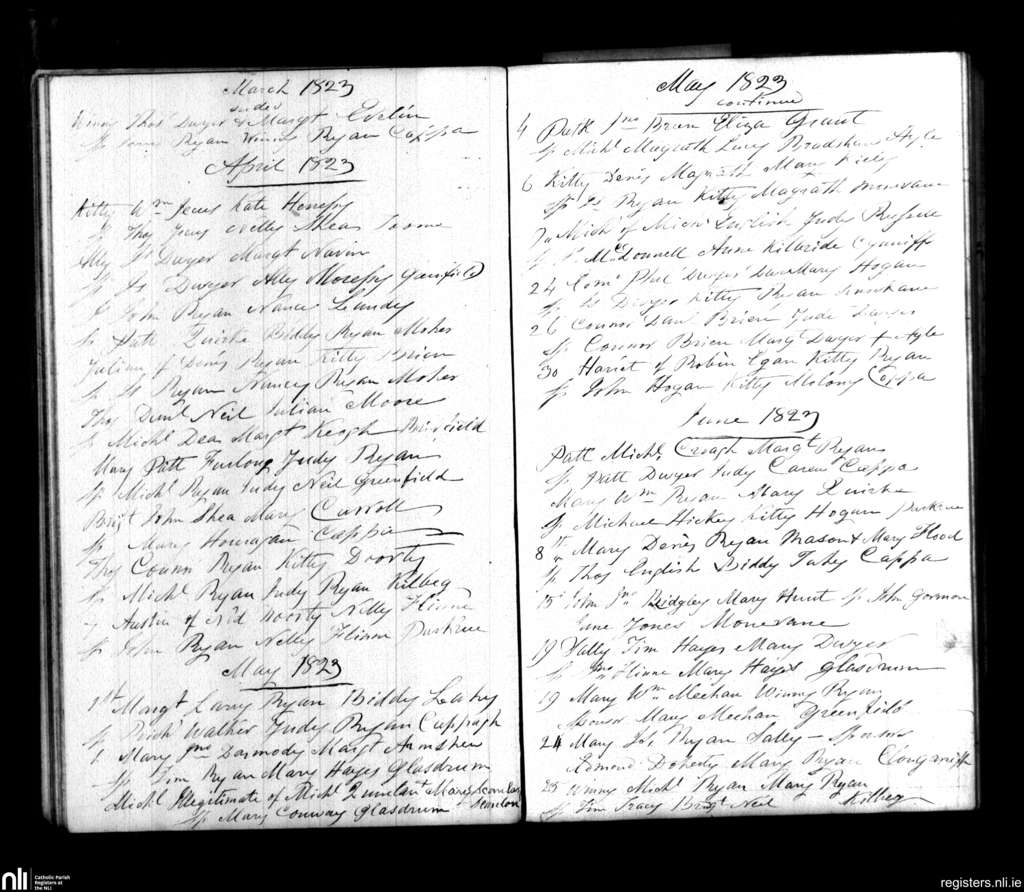 March 1823
Winny Thos Dwyer & Margt
Sp James Ryan Winny Ryan Cappa
April 1823
Kitty Wm Kate Henessy
Sp Thos Nelly Shea
Ally Js Dwyer Margt Navin
Sp Js Dwyer Ally Greenfield
John Ryan Nancy Landy
Sp Patt Quirke Biddy Ryan Moher
Julian of Denis Ryan Kitty Brien
Sp Js Ryan Nancy Ryan Moher
Thos Danl Neil Julian Moore
Sp Michl Dea Margt Keogh
Mary Patt Furlong Judy Ryan
Sp Michl Ryan Judy Neil Greenfield
Bridt John Shea Mary Carroll
Sp Mary Houragan Cappa
Thos Connor Ryan Kitty Doorty
Sp Michl Ryan Judy Ryan Kilbeg
Austin of Doorty Nelly Flinne
Sp John Ryan Nelly Flinne
May 1823
1st Margt Larry Ryan Biddy Leahy
Sp Walther Judy Ryan Cappagh
1 Mary Jno Darmody Margt
Sp Tim Ryan Mary Hayes Glasdrum
Michl Illegitimate of Michl Quinlan Mary Scanlan
Scanlon
Sp Mary Conway Glasdrum
May 1823
continue
4 Patk Jno Brien Eliza Grant
Sp Michl Magrath Lucy Bradshaw Hyle
6 Kitty Denis Magrath Mary
Sp Js Ryan Kitty Magrath
Mich of Mich English Judy
Sp McDonnell Anne Kilbride
24 Phil Dwyer Mary Hogan
Sp Js Dwyer Kitty Ryan
26 Connor Danl Brien Jude Dwyer
Sp Connor Brien Margt Dwyer Hyle
30 Hariet of Robin Egan Kitty Ryan
Sp John Hogan Kitty Molony Cappa
June 1823
Patt Michl Creagh Margt Ryan
Sp Patt Dwyer Judy Carew Cappa
Mary Wm Ryan Mary Quirke
Sp Michael Hickey Kitty Hogan
8th Mary Denis Ryan Mason & Mary Flood
Sp Thos English Biddy Fahy Cappa
15 John Jno Ridgley Mary Hunt Sp John Gorman
Jane Jones Monevane
19 Sally Tim Hayes Mary Dwyer
Sp Jno Flinne Mary Hayes Glasdrum
19 Mary Wm Meehan Winny Ryan
Sponsor Mary Meehan Greenfield
24 Mary Js Ryan Sally
Edmond Doherty Mary Ryan
25 Winny Michl Ryan Mary Ryan
Sp Tim Tracy Bridgt Neil Kilbeg
nli
Catholic Parish
Registers at
the NLI
registers.nli.ie